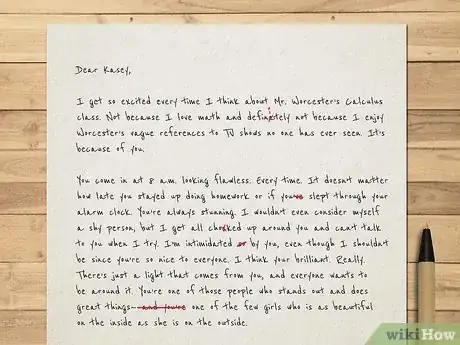 Dear Kasey,
I get so excited every time I think about Mr. Worcester's Calculus
class. Not because I love math and definitely not because I enjoy
Worcester's vague references to TV shows no one has ever seen. It's
because of you.
You come in at 8 a.m. looking flawless. Every time. It doesn't matter
how late you stayed up doing homework or if you're slept through your
alarm clock. You're always stunning. I wouldn't even consider myself
a shy person, but I get all choked up around you and can't talk
to you when I try. I'm intimidated or by you, even though I shouldn't
be since you're so nice to everyone. I think your brilliant. Really.
There's just a light that comes from you, and everyone wants to
be around it. You're one of those people who stands out and does
great things- and you're one of the few girls who is as beautiful
on the inside as she is on the outside.
wikiHow